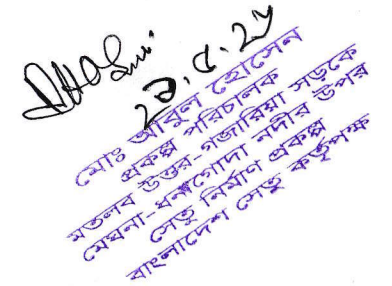 ২৯.৫.২৫
মোঃ আবুল হোসেন
প্রকল্প পরিচালক
মতলব উত্তর-গজারিয়া সড়কে
মেঘনা-ধনাগোদা নদীর উপর
সেতু নির্মাণ প্রকল্প
বাংলাদেশ সেতু কর্তৃপক্ষ